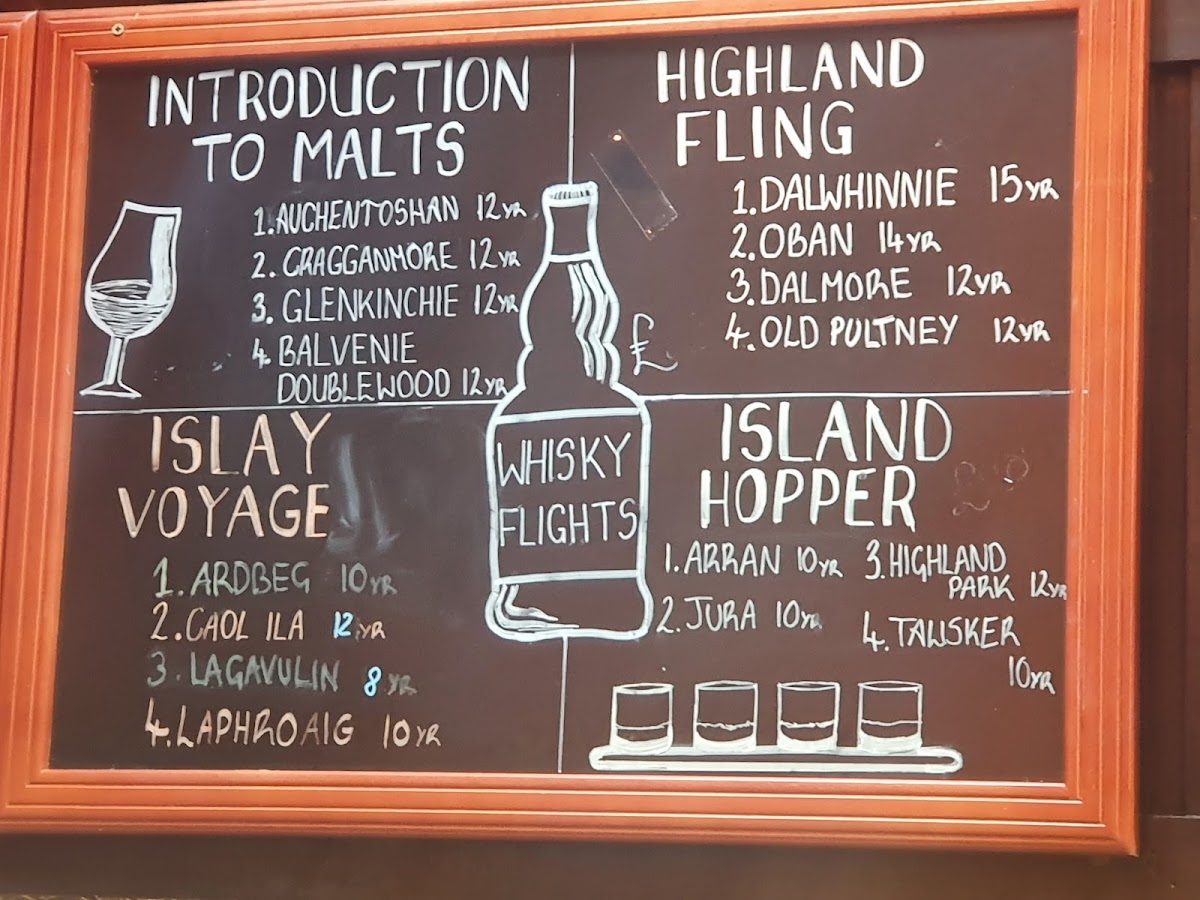 INTRODUCTION
TO MALTS
1. AUCHENTOSHAN 12YR
2. CRAGGANMORE 12YR
3. GLENKINCHIE 12YR
4. BALVENIE
DOUBLEWOOD 12YR
HIGHLAND
FLING
1. DALWHINNIE 15YR
2. OBAN 14YR
3. DALMORE 12YR
4. OLD PULTNEY 12YR
£
WHISKY
FLIGHTS
ISLAY
VOYAGE
1. ARDBEG 10YR
2. CAOL ILA 12YR
3. LAGAVULIN 8YR
4. LAPHROAIG 10YR
ISLAND
HOPPER
1. ARRAN 10YR
2. JURA 10YR
3. HIGHLAND
PARK 12YR
4. TALISKER
10YR